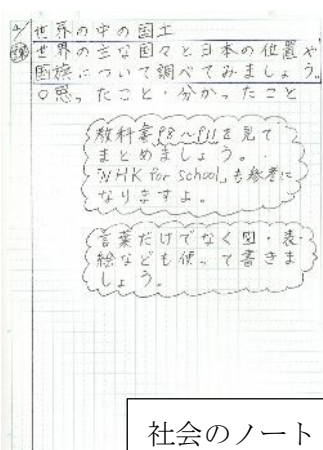 世界の中の国土
世界の主な国々と日本の位置や
国旗について調べてみましょう。
○思ったこと・分かったこと
教科書P8～P11を見て
まとめましょう。
「NHK for School」も参考に
なりますよ。
言葉だけでなく図・表・
絵なども使って書きま
しょう。
社会のノート